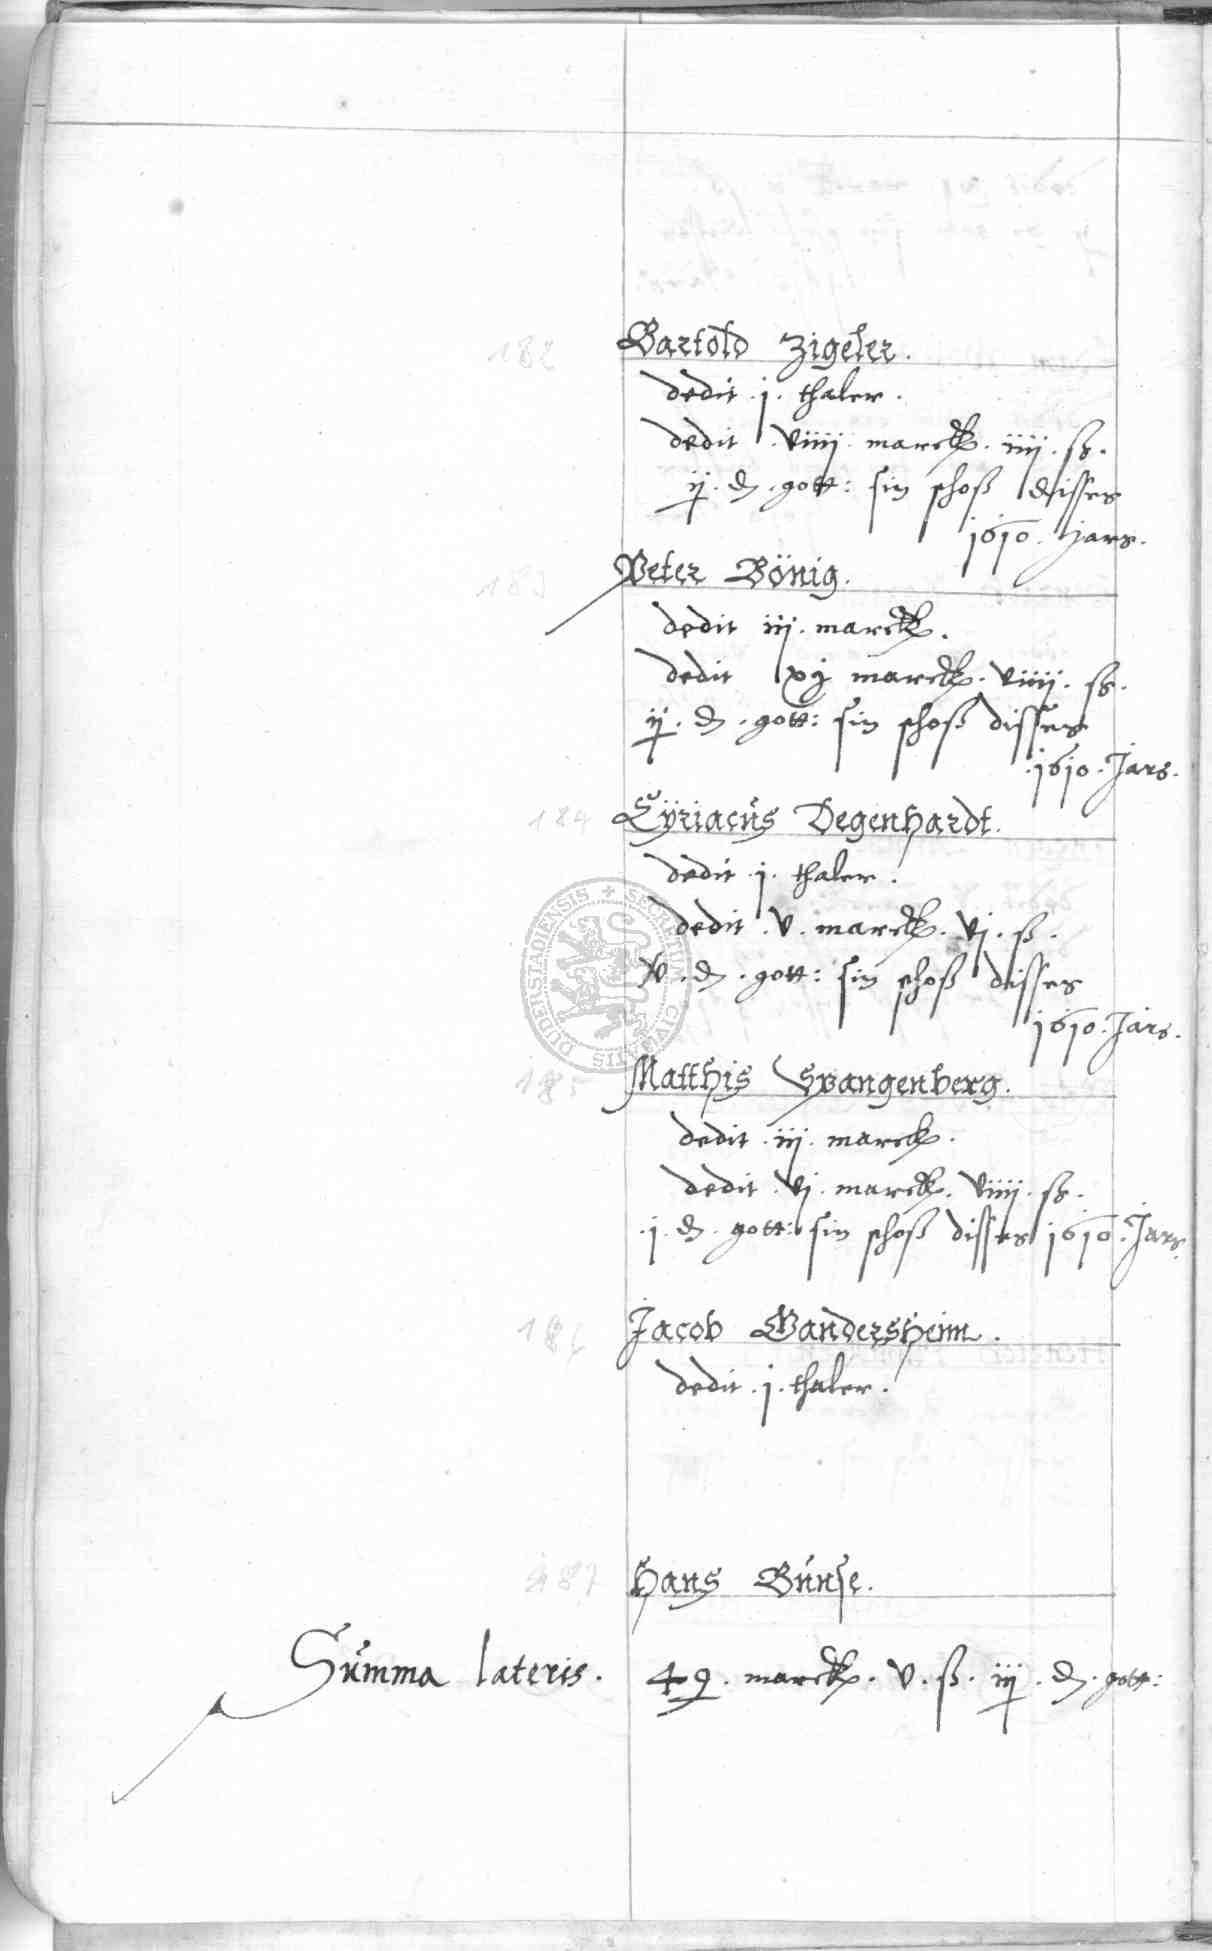 182 Bartold Zigeler.
dedit .j. thaler.
dedit . viiij . marck . iiij . ß.
ij . d . gott: sin schoß disses
1610. Jars.
183 Peter Bönig.
dedit iij. marck.
dedit xj marck. viiij. ß.
ij. d. gott: sin schoß disses
.1610. Jars.
184 Cÿriacus Degenhardt.
dedit .j. thaler.
dedit . v . marck . vj . ß.
v . d . gott: sin schoß disses
1610. Jars.
185 Matthis Spangenberg.
dedit . iij . marck.
dedit . vj . marck . viiij . ß.
.j. d. gott: sin schoß disses 1610. Jars.
186 Jacob Gandersheim.
dedit .j. thaler.
187 Hans Bunse.
Summa lateris. 49. marck. v. ß. iij. d. gott:
SECRETUM CIVITATIS DUDERSTADIENSIS